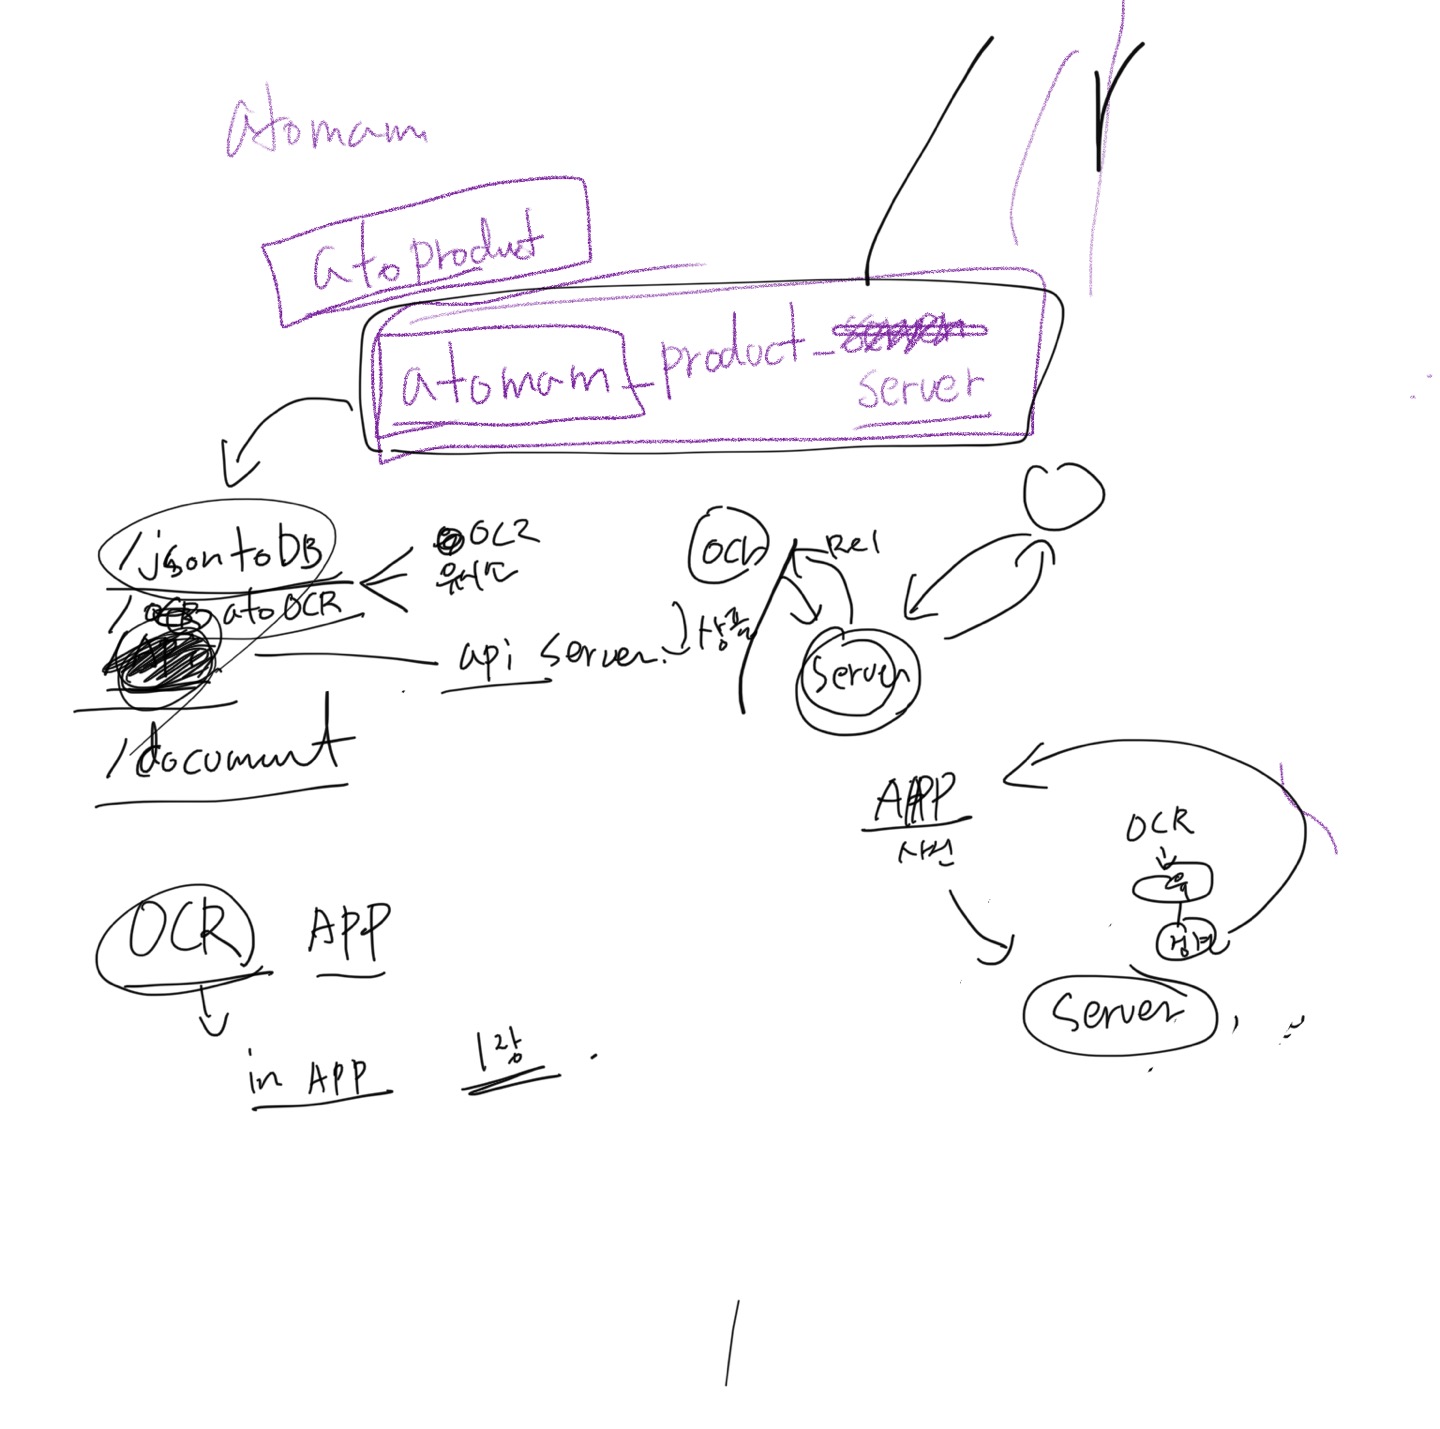 atomam
atoproduct
atomam_product_
server
/jsontoDB
OCR
유사도
/ atoOCR
api server.
상품
/document
OCR
Server
APP
사진
OCR
Server
OCR APP
in APP 1장